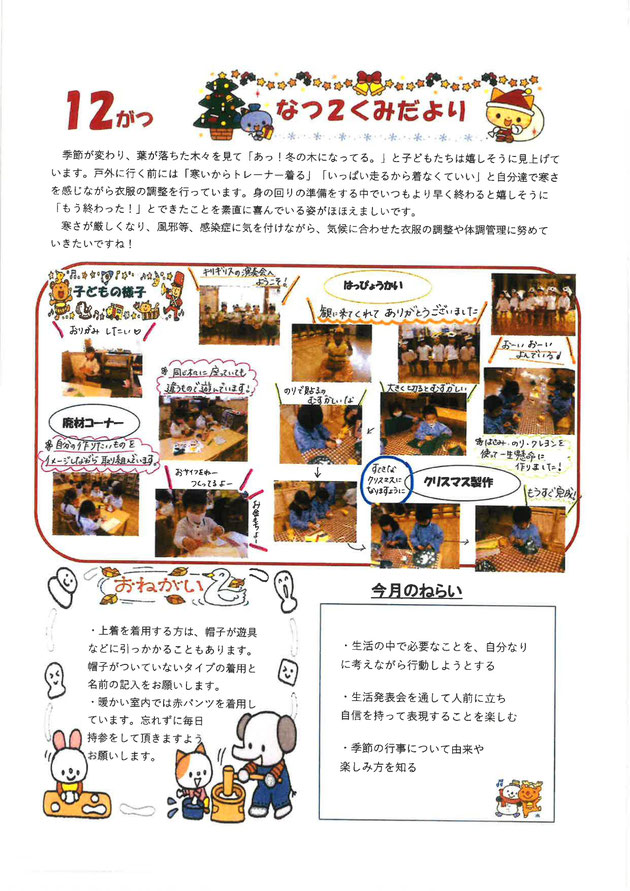 12がつ
なつ2くみだより
季節が変わり、葉が落ちた木々を見て「あっ！冬の木になってる。」と子どもたちは嬉しそうに見上げて
います。戸外に行く前には「寒いからトレーナー着る」「いっぱい走るから着なくていい」と自分達で寒さ
を感じながら衣服の調整を行っています。身の回りの準備をする中でいつもより早く終わると嬉しそうに
「もう終わった！」とできたことを素直に喜んでいる姿がほほえましいです。
寒さが厳しくなり、風邪等、感染症に気を付けながら、気候に合わせた衣服の調整や体調管理に努めて
いきたいですね！
子どもの様子
キリギリスの演奏会へ
ようこそ！
はっぴょうかい
観に来てくれて ありがとうございました
おーい おーい
よんでいる
おりがみ したい♡
同じ机に座っていても
違うもので遊んでいます！
のりで貼るの
むずかしいな
大きく切るとむずかしい
廃材コーナー
自分の作りたいものを
イメージしながら 取り組んでいます。
はさみ・のり・クレヨンを
使って一生懸命に
作りました！
すてきな
クリスマスに
なりますように
クリスマス製作
もうすぐ完成！
おやイフをねー
つくってるよー
おねがい
・上着を着用する方は、帽子が遊具
などに引っかかることもあります。
帽子がついていないタイプの着用と
名前の記入をお願いします。
・暖かい室内では赤パンツを着用し
ています。忘れずに毎日
持参をして頂きますよう
お願いします。
今月のねらい
・生活の中で必要なことを、自分なり
に考えながら行動しようとする
・生活発表会を通して人前に立ち
自信を持って表現することを楽しむ
・季節の行事について由来や
楽しみ方を知る